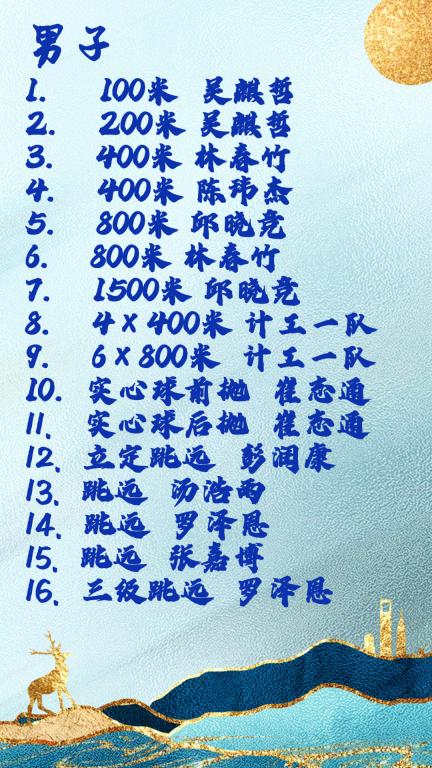 男子
1. 100米 吴麒哲
2. 200米 吴麒哲
3. 400米 林春竹
4. 400米 陈玮杰
5. 800米 邱晓竞
6. 800米 林春竹
7. 1500米 邱晓竞
8. 4×400米 计工一队
9. 6×800米 计工一队
10. 实心球前抛 崔志通
11、 实心球后抛 崔志通
12、立定跳远 彭润康
13、跳远 汤浩雨
14、跳远 罗泽恩
15、跳远 张嘉博
16、三级跳远 罗泽恩